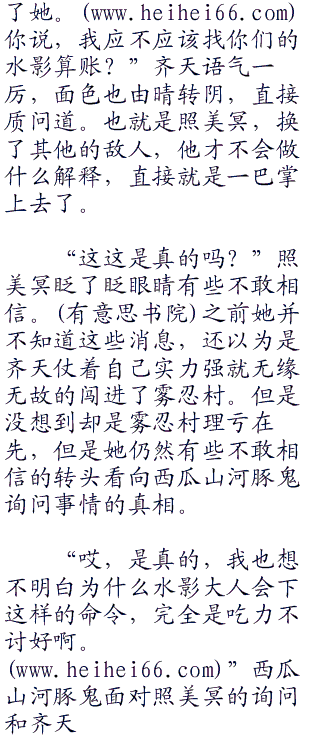 了她。(www.heihei66.com)
你说，我应不应该找你们的
水影算账？”齐天语气一
厉，面色也由晴转阴，直接
质问道。也就是照美冥，换
了其他的敌人，他才不会做
什么解释，直接就是一巴掌
上去了。
“这这是真的吗？”照
美冥眨了眨眼睛有些不敢相
信。(有意思书院)之前她并
不知道这些消息，还以为是
齐天仗着自己实力强就无缘
无故的闯进了雾忍村。但是
没想到却是雾忍村理亏在
先，但是她仍然有些不敢相
信的转头看向西瓜山河豚鬼
询问事情的真相。
“哎，是真的，我也想
不明白为什么水影大人会下
这样的命令，完全是吃力不
讨好啊。
(www.heihei66.com)”西瓜
山河豚鬼面对照美冥的询问
和齐天